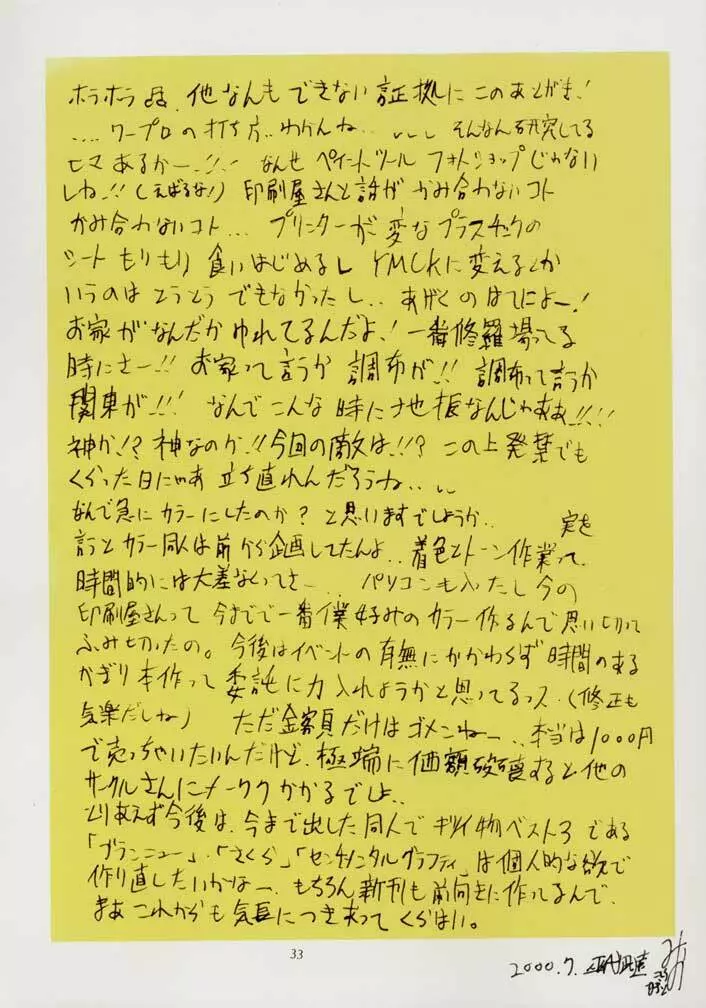 ホラホラ 他なんもできない証拠にこのあとがき!
....ワープロの打ち方..わかんね...、、、、そんなん研究してる
ヒマあるかー..!!! なんせペイントツール フォトショップじゃない
しね..!!(えばるな!) 印刷屋さんと話がかみ合わないコト
かみ合わないコト... プリンターが変なプラスチックの
シートもりもり食いはじめるし YMCKに変えるとか
いうのはとうとうできなかったし.. あげくのはてによー!
お家がなんだかゆれてるんだよ! 一番修羅場ってる
時にさー..!! お家って言うか調布が!! 調布って言うか
関東が..!!! なんでこんな時に地振なんじゃああ!!!!
神か!? 神なのか!!今回の敵は..!!? この上発禁でも
くらった日にゃあ立ち直れんだろうね...、、
なんで急にカラーにしたのか?と思いますでしょうか.. 実を
言うとカラー同人は前から企画してたんよ..着色とトーン作業って、
時間的には大差なくってさー... パソコンも入たし今の
印刷屋さんって今までで一番僕好みのカラー作るんで思い切って
ふみ切ったの。今後はイベントの有無にかかわらず時間のある
かぎり本作って委託に力入れようかと思ってるっス.(修正も
気楽だしね) ただ金額だけはゴメンねー..、本当は1000円
で売っちゃいたいんだけど、極端に価額破壊すると他の
サークルさんにメーワクかかるでしょ..
とりあえず今後は、今まで出した同人でキツイ物ベスト3である
「ブランニュー」・「さくら」「センチメンタルグラフティ」は個人的な欲で
作り直したいかなー、もちろん新刊も前向きに作ってるんで、
まあこれからも気長につき合ってくらはい。
33
2000.7.